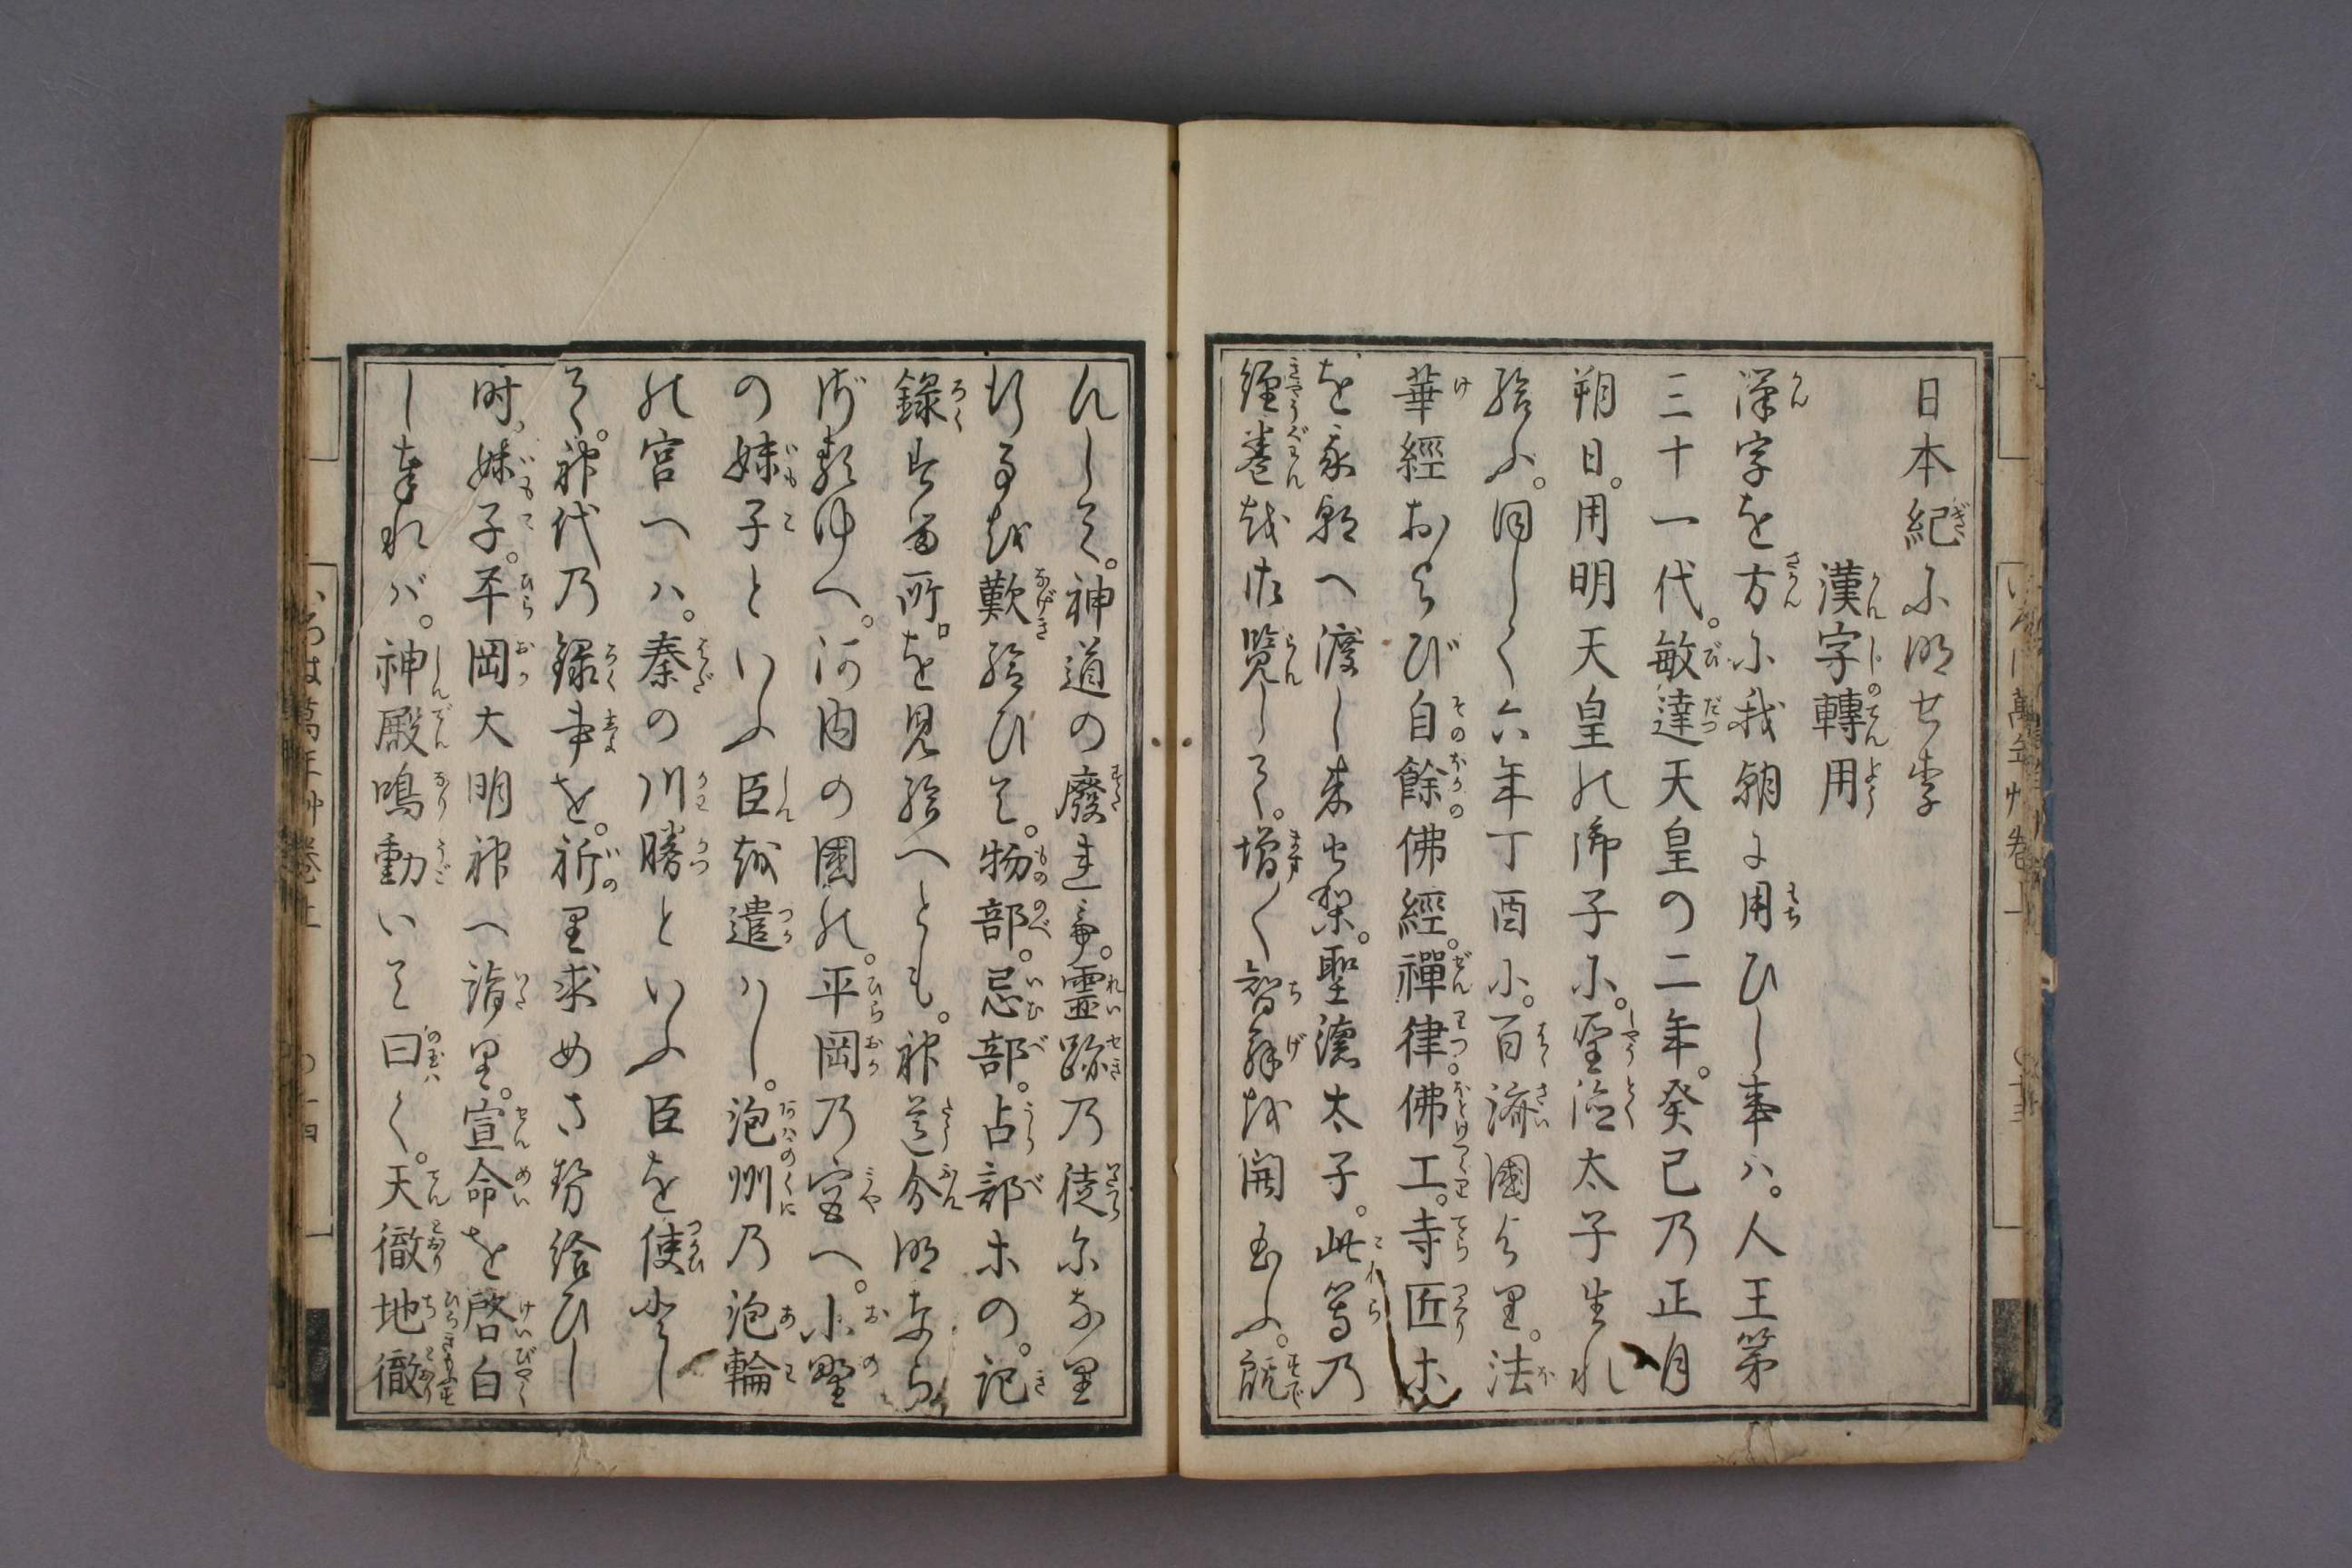 日本紀に明せり
漢字轉用
漢字を方に我朝に用ひし事ハ。人王第
三十一代。敏達天皇の二年。癸巳乃正月
朔日。用明天皇の御子に。聖徳太子生れ
給ふ。同しく六年丁酉に。百済國より。法
華經および自餘佛經。禪律。佛工。寺匠ホ
を我朝へ渡し来せり。聖徳太子。此等乃
經巻を御覧して。増〱智解を開玉ふ。既
にして。神道の廢
れ。靈跡乃徒になり
行るを歎給ひて。物部。忌部。占部ホの。記
録する所を見給へとも。神道分明なら
ざるゆへ。河内の國の。平岡乃宮へ。小野
の妹子といふ臣を遣ハし。泡州乃泡輪
の宮へハ。秦の川勝といふ臣を使として
て。神代乃録事を。祈里求めさせ給ひし
時。妹子。平岡大明神へ詣里。宣命を啓白
し奉れバ。神殿鳴動いて曰く。天徹地徹